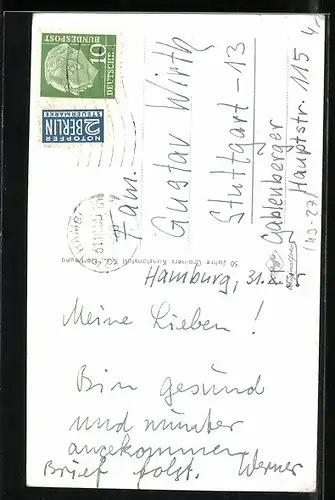 Hamburg, 31.8.55
Meine Lieben!
Bin gesund
und munter
angekommen
Brief folgt. Werner
Fam.
Gustav Wirth
Stuttgart-13
Gablenberger
Hauptstr. 115
DEUTSCHE
BUNDESPOST
10
NOTOPFER
2 BERLIN
STEUERMARKE
50 Jahre Krainers Kunstanstalt